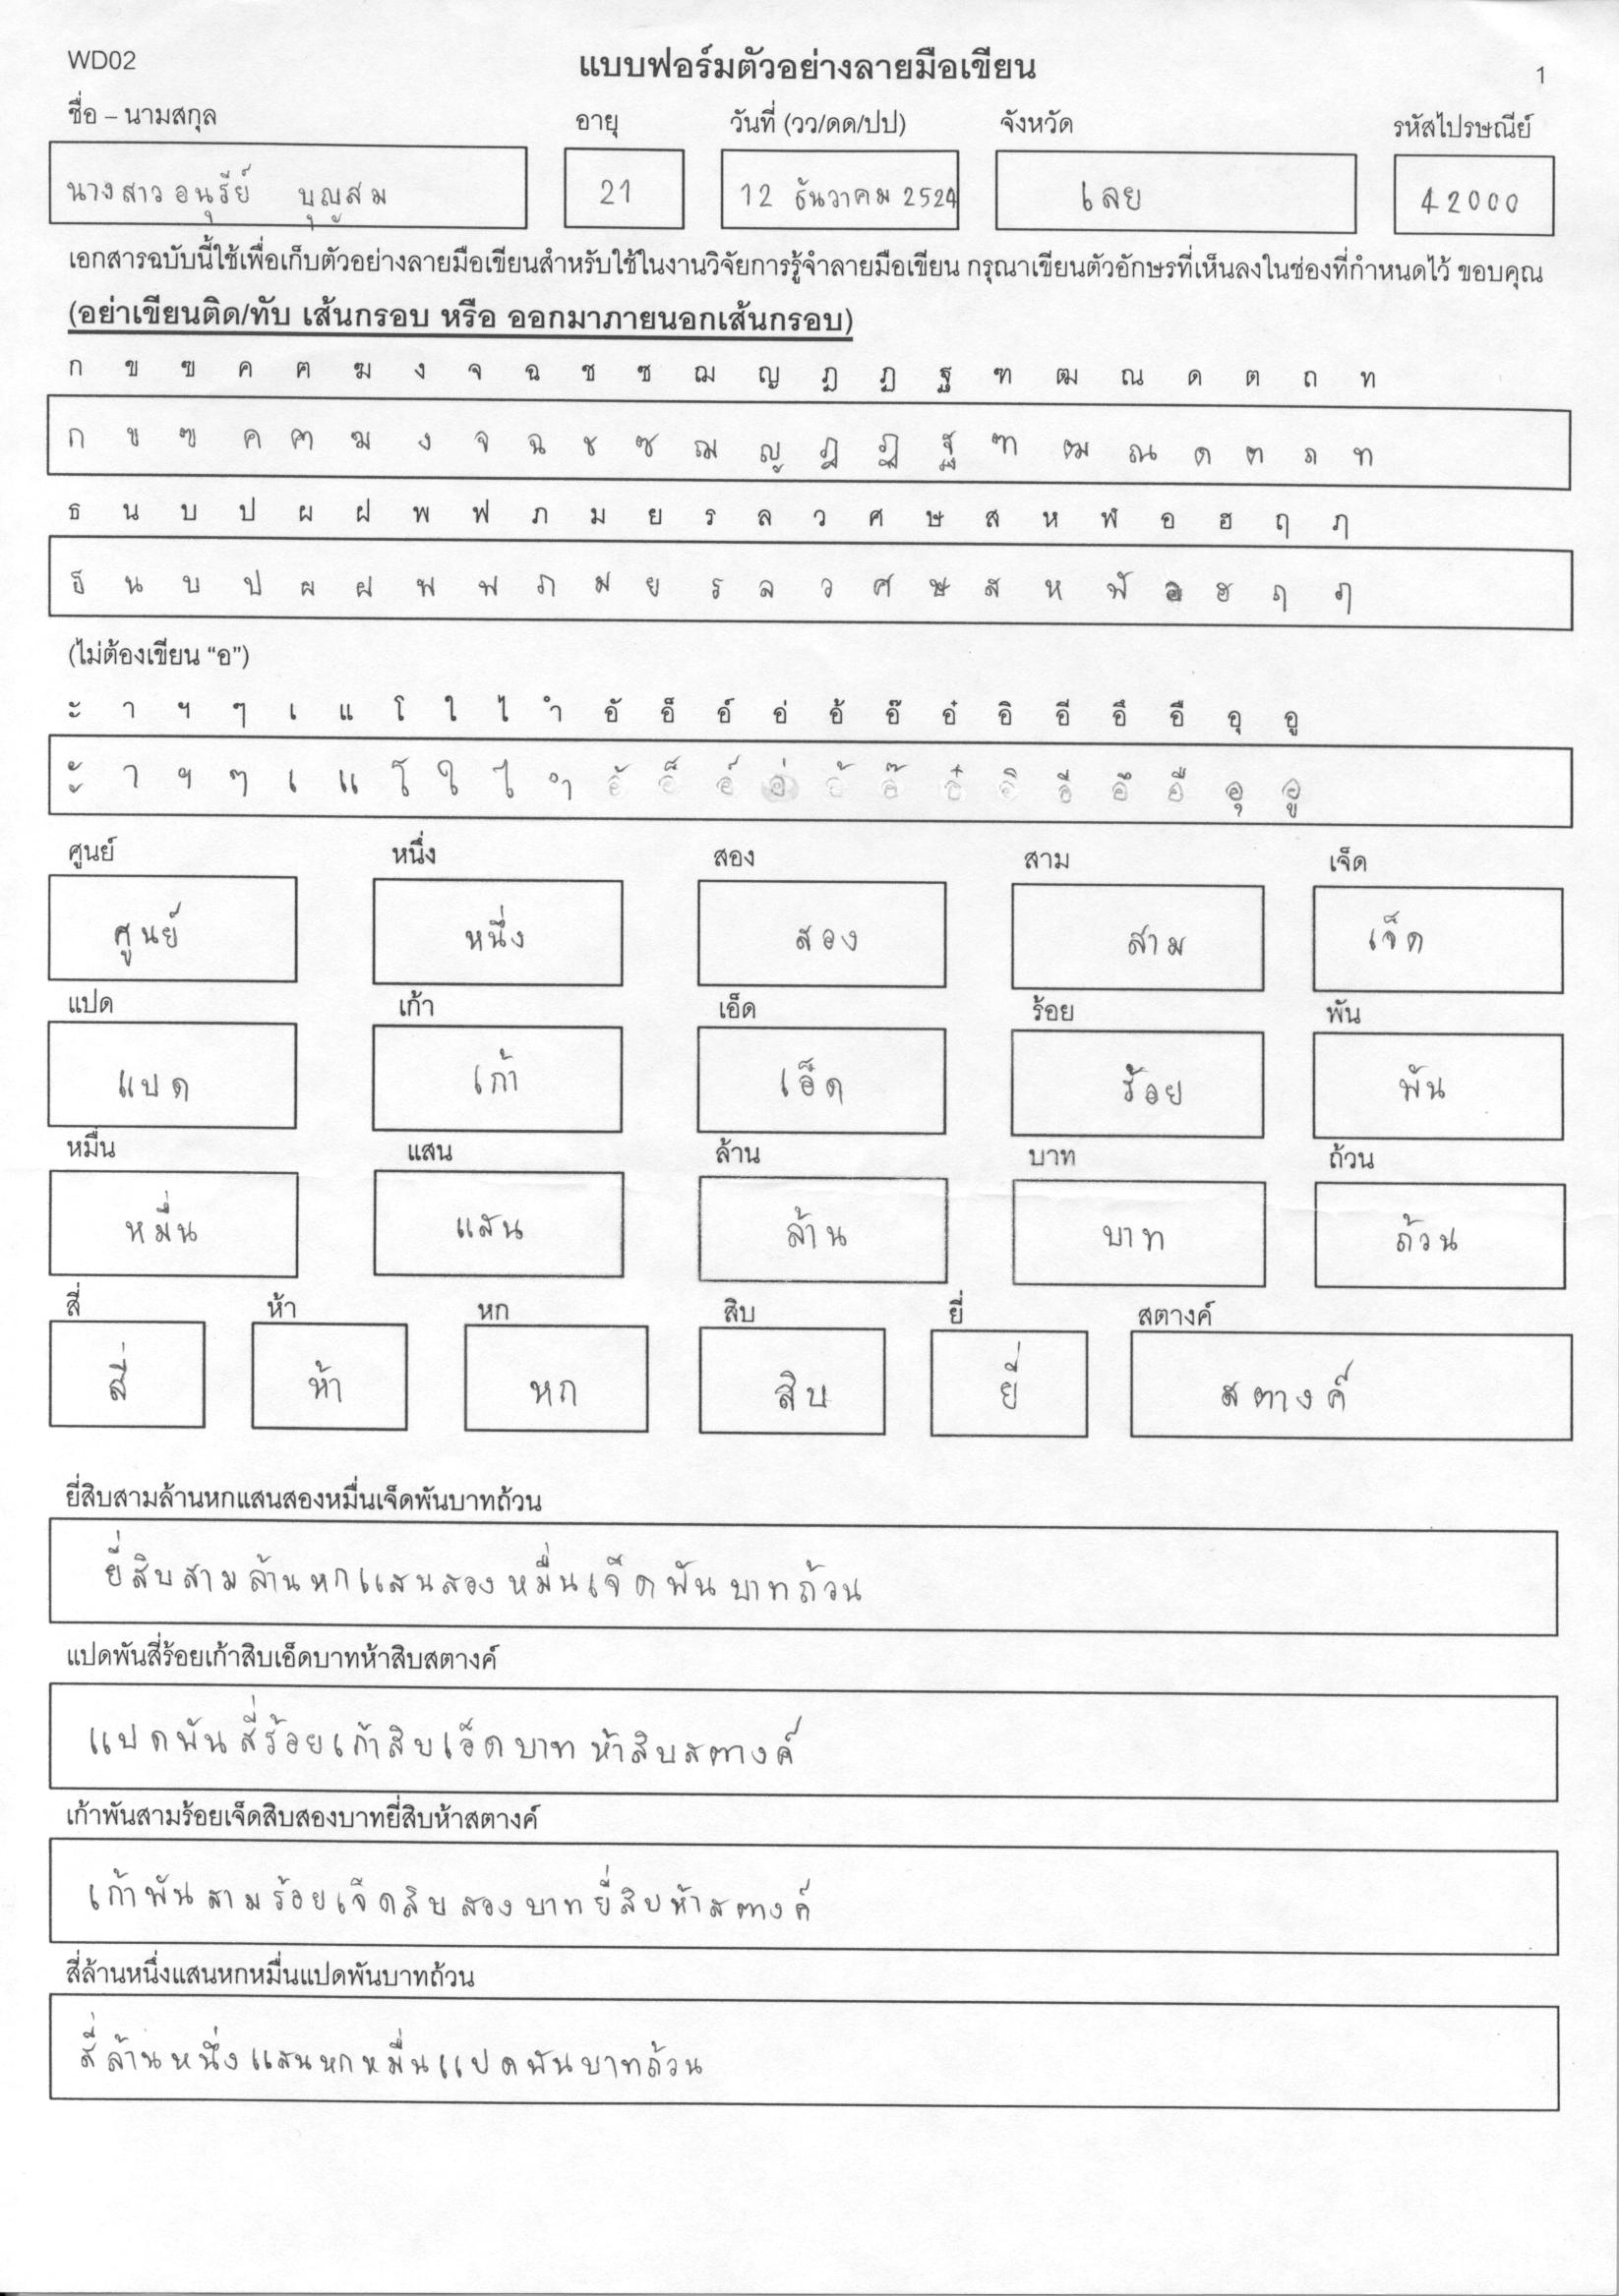 WD02 แบบฟอร์มตัวอย่างลายมือเขียน 1
ชื่อ – นามสกุล อายุ วันที่ (วว/ดด/ปป) จังหวัด รหัสไปรษณีย์
นางสาว อนุรีย์ บุญสม 21 12 ธันวาคม 2524 เลย 42000
เอกสารฉบับนี้ใช้เพื่อเก็บตัวอย่างลายมือเขียนสำหรับใช้ในงานวิจัยการรู้จำลายมือเขียน กรุณาเขียนตัวอักษรที่เห็นลงในช่องที่กำหนดไว้ ขอบคุณ
(อย่าเขียนติด/ทับ เส้นกรอบ หรือ ออกมาภายนอกเส้นกรอบ)
ก ข ฃ ค ฅ ฆ ง จ ฉ ช ซ ฌ ญ ฎ ฏ ฐ ฑ ฒ ณ ด ต ถ ท
ก ข ฃ ค ฅ ฆ ง จ ฉ ช ซ ฌ ญ ฎ ฏ ฐ ฑ ฒ ณ ด ต ถ ท
ธ น บ ป ผ ฝ พ ฟ ภ ม ย ร ล ว ศ ษ ส ห ฬ อ ฮ ฤ ฦ
ธ น บ ป ผ ฝ พ ฟ ภ ม ย ร ล ว ศ ษ ส ห ฬ อ ฮ ฤ ฦ
(ไม่ต้องเขียน “อ”)
ะ า ฯ ๆ เ แ โ ใ ไ ำ อั อ็ อ์ อ่ อ้ อ๊ อ๋ อิ อี อึ อื อุ อู
ะ า ฯ ๆ เ แ โ ใ ไ ำ อั อ็ อ์ อ่ อ้ อ๊ อ๋ อิ อี อึ อื อุ อู
ศูนย์ หนึ่ง สอง สาม เจ็ด
ศูนย์ หนึ่ง สอง สาม เจ็ด
แปด เก้า เอ็ด ร้อย พัน
แปด เก้า เอ็ด ร้อย พัน
หมื่น แสน ล้าน บาท ถ้วน
หมื่น แสน ล้าน บาท ถ้วน
สี่ ห้า หก สิบ ยี่ สตางค์
สี่ ห้า หก สิบ ยี่ สตางค์
ยี่สิบสามล้านหกแสนสองหมื่นเจ็ดพันบาทถ้วน
ยี่สิบสามล้านหกแสนสองหมื่นเจ็ดพันบาทถ้วน
แปดพันสี่ร้อยเก้าสิบเอ็ดบาทห้าสิบสตางค์
แปดพันสี่ร้อยเก้าสิบเอ็ดบาทห้าสิบสตางค์
เก้าพันสามร้อยเจ็ดสิบสองบาทยี่สิบห้าสตางค์
เก้าพันสามร้อยเจ็ดสิบสองบาทยี่สิบห้าสตางค์
สี่ล้านหนึ่งแสนหกหมื่นแปดพันบาทถ้วน
สี่ล้านหนึ่งแสนหกหมื่นแปดพันบาทถ้วน